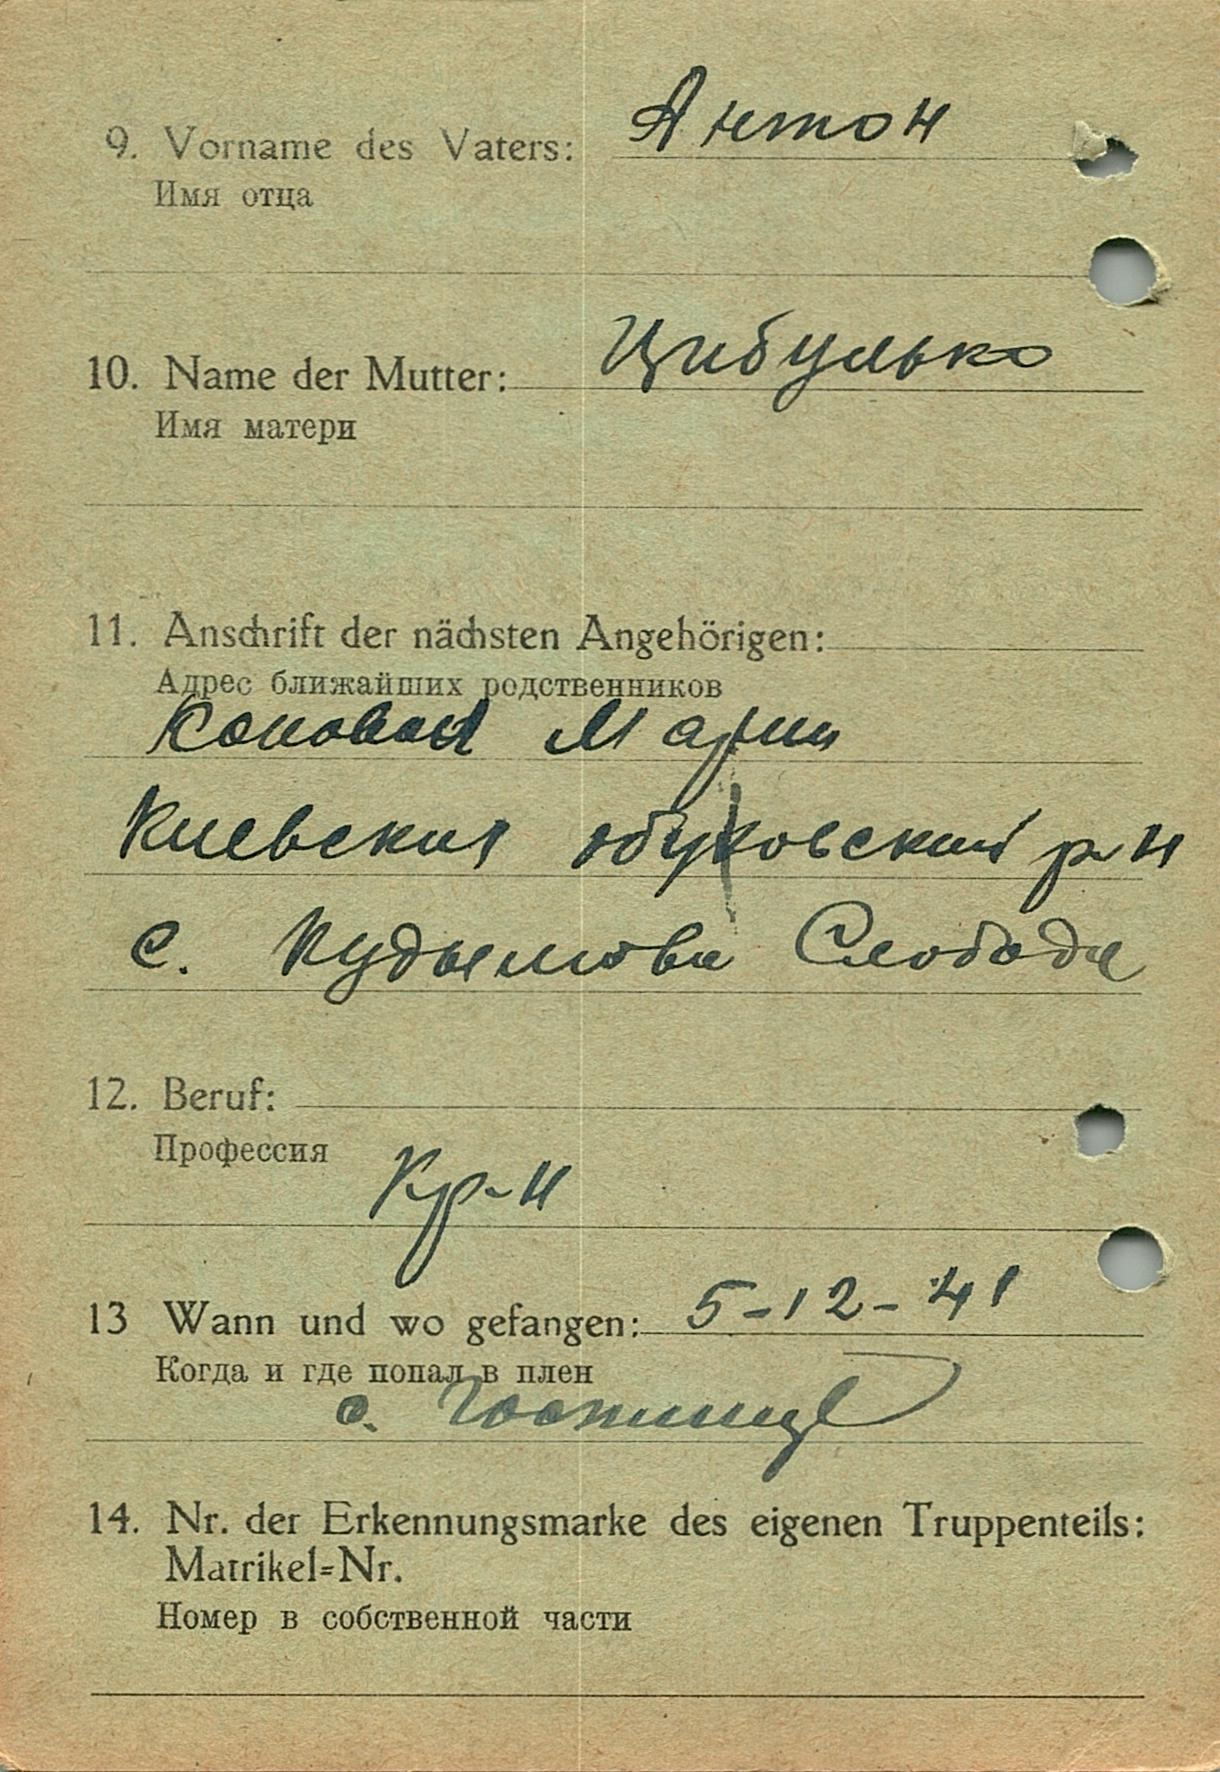 9. Vorname des Vaters: Антон
Имя отца
10. Name der Mutter: Цибулько
Имя матери
11. Anschrift der nächsten Angehörigen:
Адрес ближайших родственников
Мария
Киевская обуховский р-н
с. Слобода
12. Beruf:
Профессия
Кр-н
13 Wann und wo gefangen: 5-12-41
Когда и где попал в плен
с.
14. Nr. der Erkennungsmarke des eigenen Truppenteils:
Matrikel=Nr.
Номер в собственной части